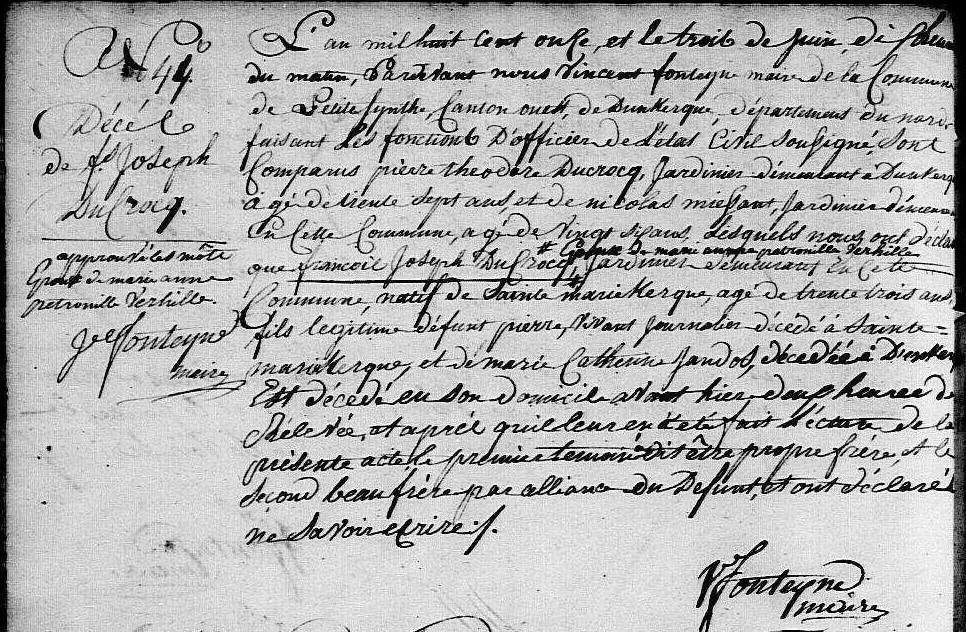 No 44
Décés
de fs. Joseph
DuCrocq.
approuvé les mots
Epoux de marie anne
petronille verhille.
Je fonteyne
maire
L'an mil huit cent onse, et le trois de juin, di
du matin, Pardevant nous Vincent fonteyne maire de la Commune
de Petite Synthe, Canton ouest, de Dunkerque, département du nord,
faisant Les fonctions D'officier de L'état Civil Soussigné, Sont
Comparus pierre theodore Ducrocq, Jardinier démeurant à Dunkerq
agé de trente sept ans, et de nicolas miessant, Jardinier démeura
En Cette Commune, agé de vingt six ans, Lesquels nous ont déclar
# Epoux De marie anne petronille Verhille
que francois Joseph DuCrocq, # Jardinier démeurant En Cette
Commune, natif de Sainte marieKerque, agé de trente trois ans,
fils legitime défunt pierre, vivant Journalier décédé à Sainte=
marieKerque, et de marie Catherine Jandos, décédée à Dunker
Est décédé en son domicile avant hier deux heures de
Rélevée, et aprés qu'il leur en eté fait Lécture de la
présente acte, le premier temoin dit être propre frére, et le
Second beaufrére par alliance du Défunt, et ont déclaré
ne Savoir ecrire ./.
V fonteyne
maire